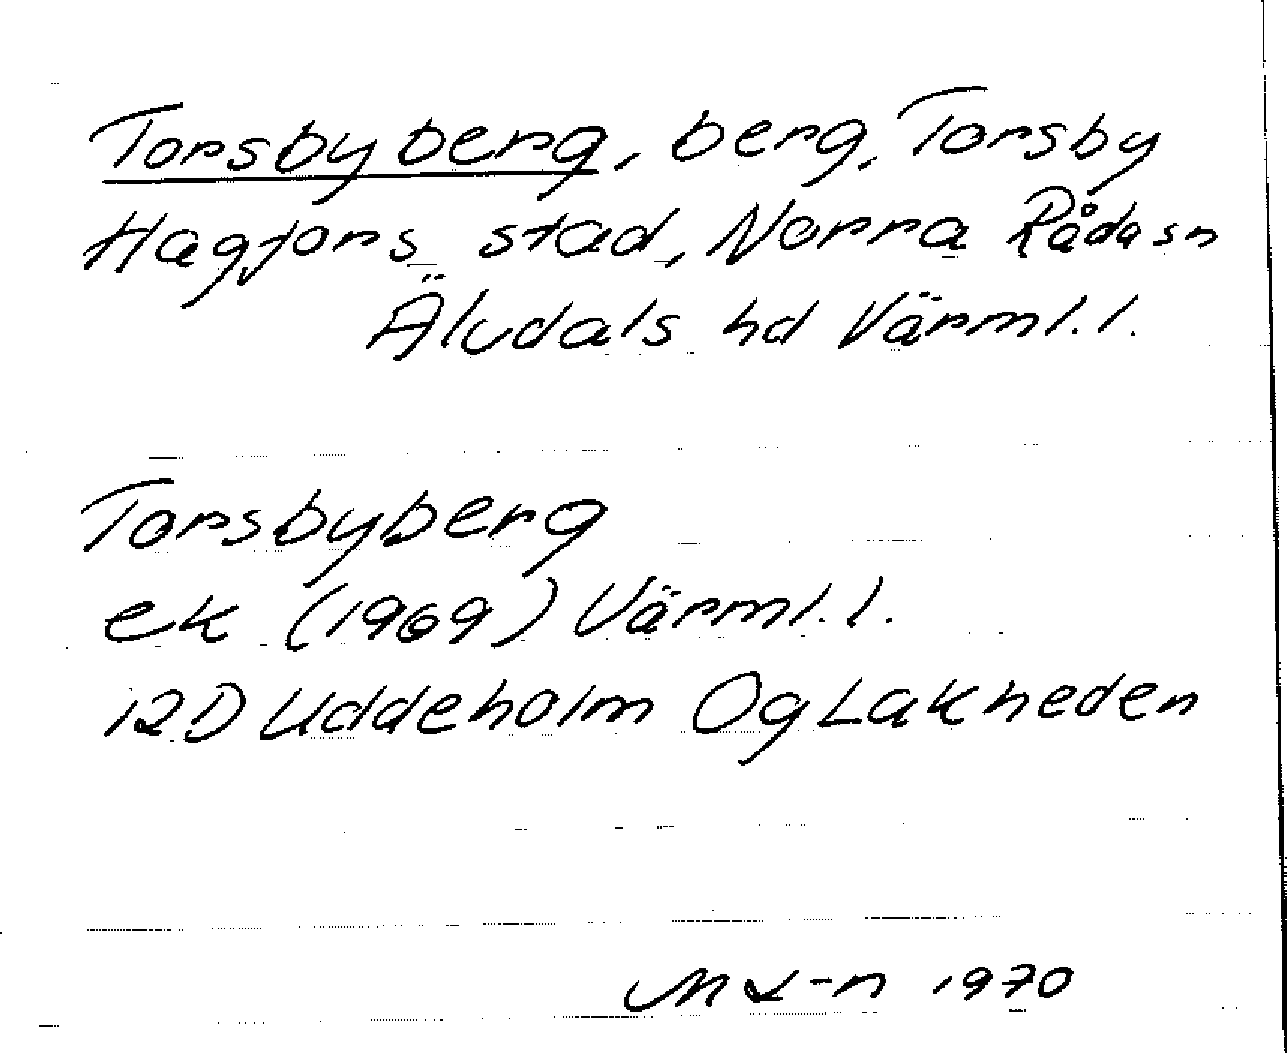 Torsbyberg, berg, Torsby
Hagfors stad, Norra Råda sn
Älvdals hd Värml. l.
Torsbyberg
ek (1969) Värml. l.
12D Uddeholm Og Lakheden
1970